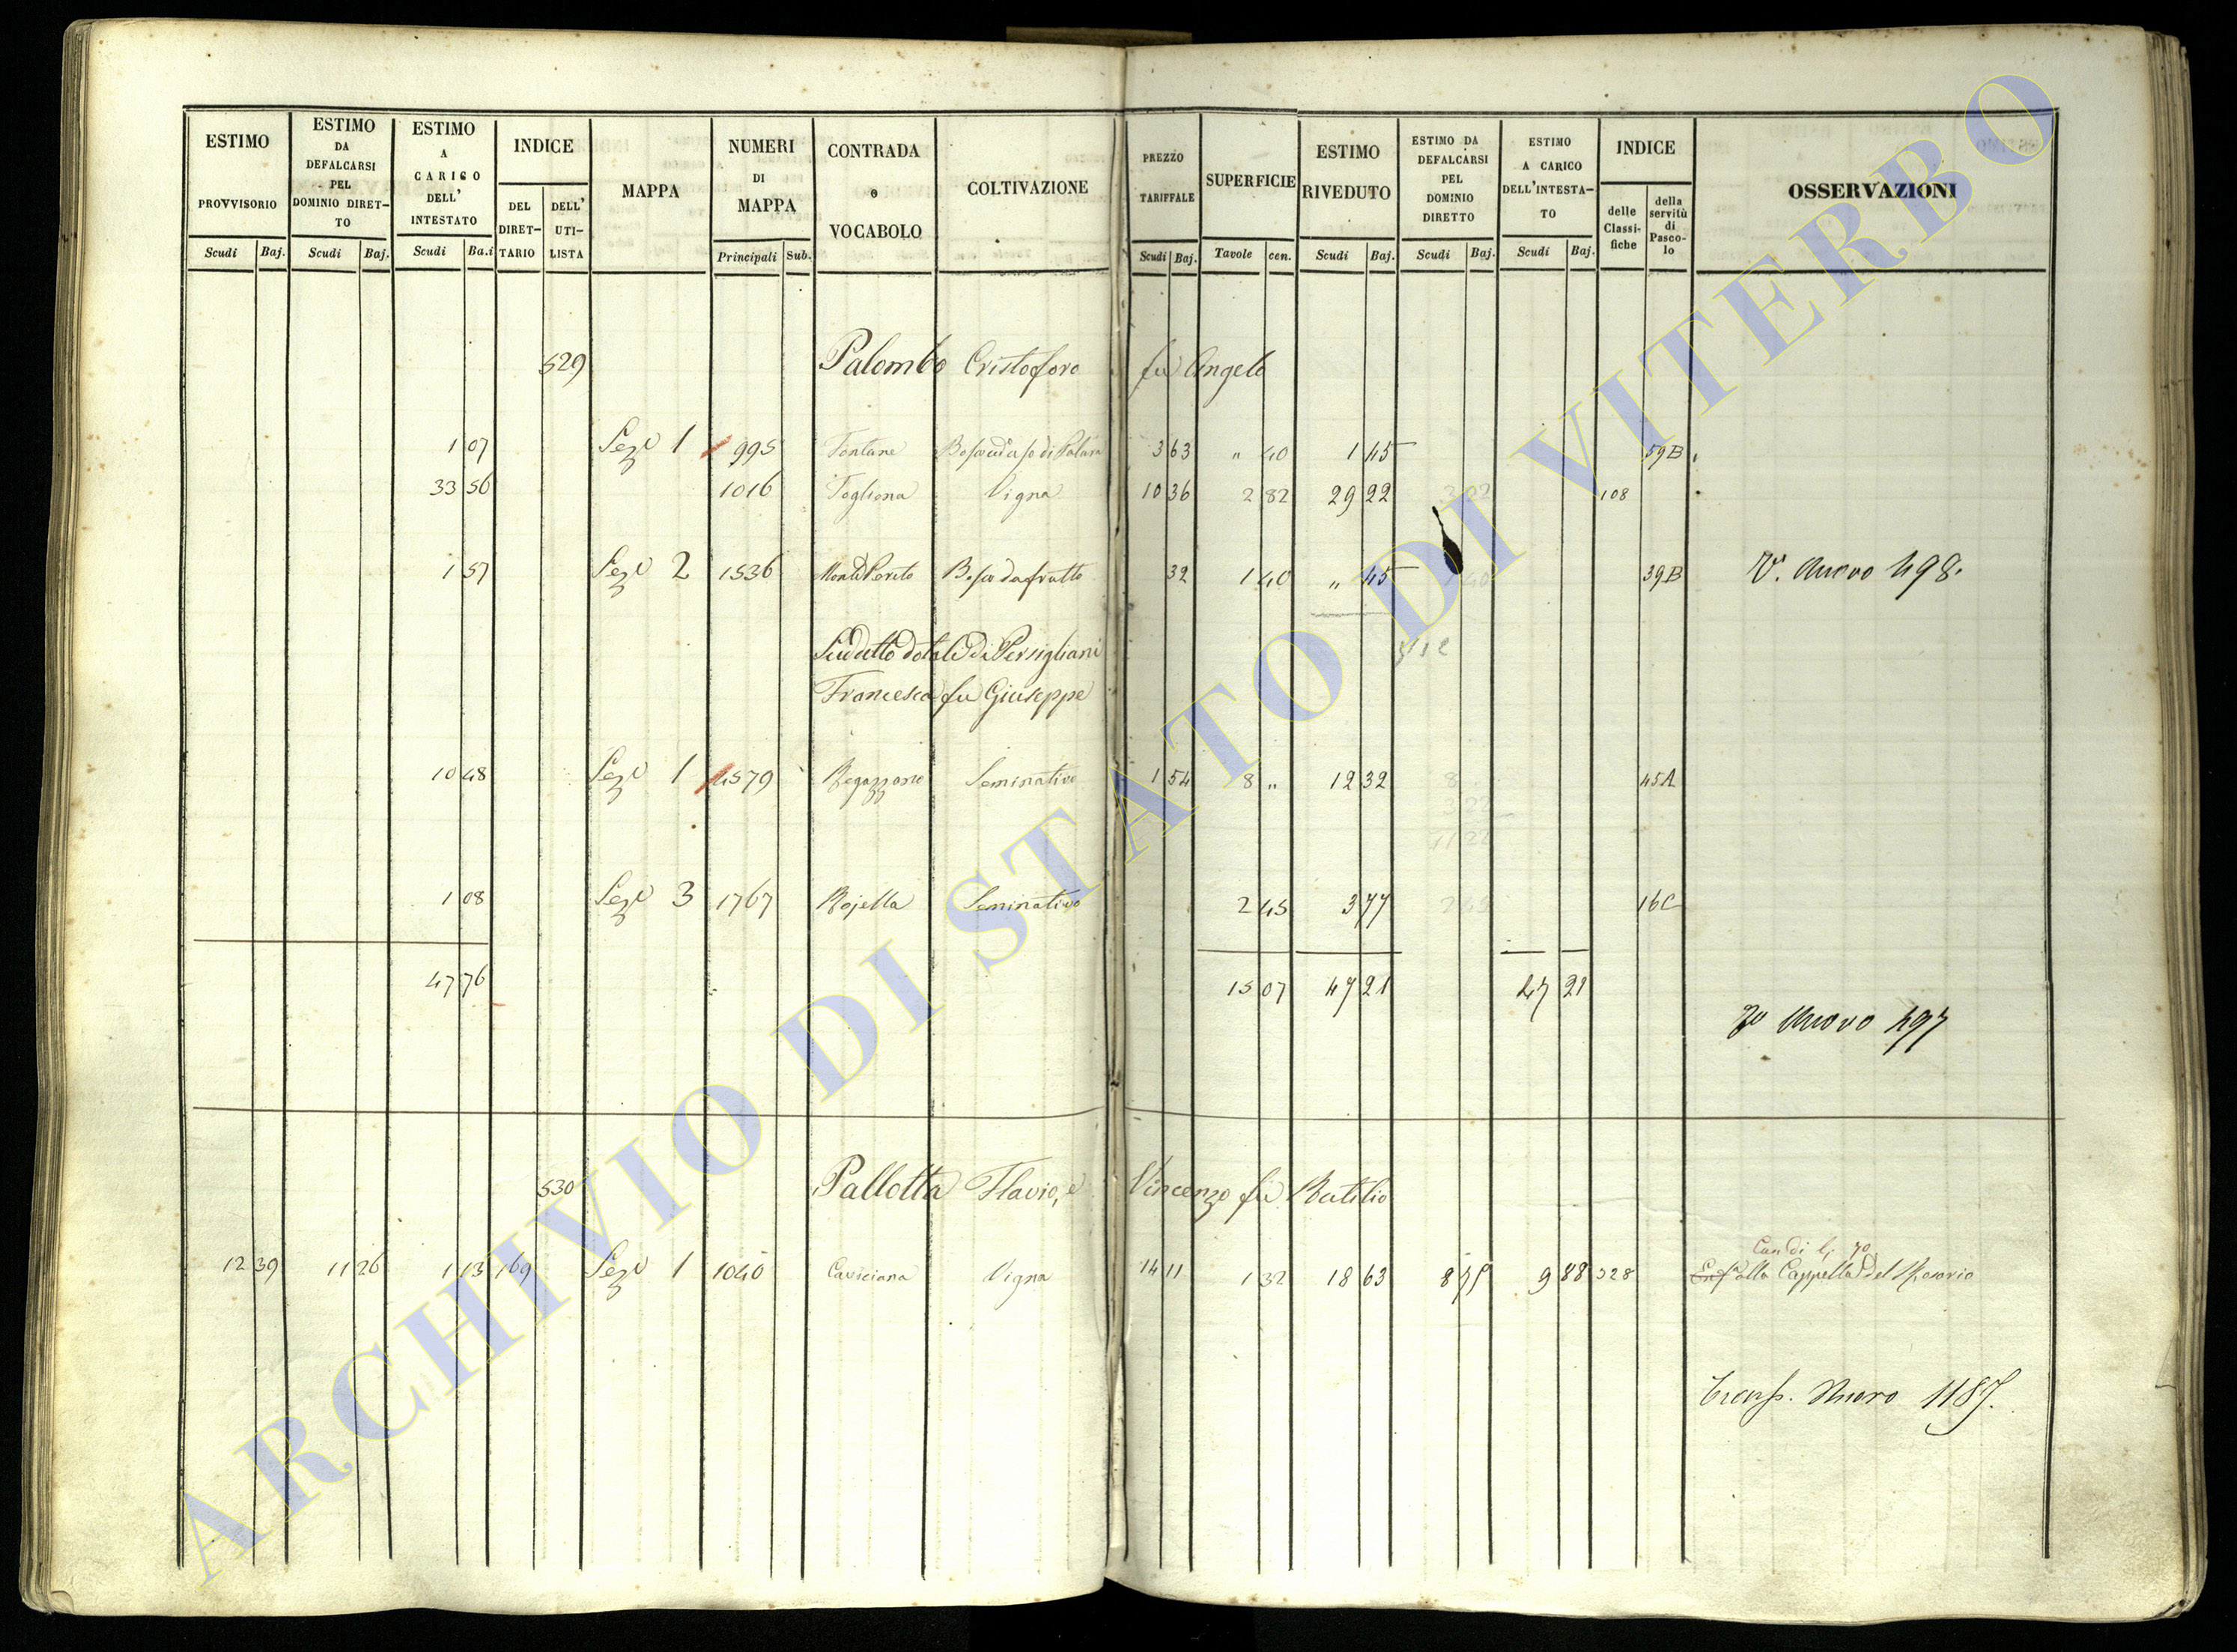 ESTIMO PROVVISORIO Scudi Baj.
ESTIMO DA DEFALCARSI PEL DOMINIO DIRET-TO Scudi Baj.
ESTIMO A CARICO DELL' INTESTATO Scudi Ba.i
INDICE DEL DIRET-TARIO DELL' UTI-LISTA
MAPPA
NUMERI DI MAPPA Principali Sub.
CONTRADA o VOCABOLO
COLTIVAZIONE
PREZZO TARIFFALE Scudi Baj.
SUPERFICIE Tavole cen.
ESTIMO RIVEDUTO Scudi Baj.
ESTIMO DA DEFALCARSI PEL DOMINIO DIRETTO Scudi Baj.
ESTIMO A CARICO DELL'INTESTA-TO Scudi Baj.
INDICE delle Classi-fiche della servitù di Pasco-lo
OSSERVAZIONI
529 Palombo Cristoforo fu Angelo
1 07 Sez.e 1 995 Fontane 3 63 " 40 1 45 59B
33 56 1016 Fogliona Vigna 10 36 2 82 29 22 108
1 57 Sez.e 2 1536 Bosco da frutto 32 1 40 " 45 39B V. Nuovo 498.
Suddetto dotale di Persigliani
Francesca fu Giuseppe
10 48 Sez.e 1 4579 Ragazzano Seminativo 1 54 8 " 12 32 45A
1 08 Sez.e 3 1767 Rojella Seminativo 2 45 3 77 16C
47 76 15 07 47 21 47 21
Nuovo 497
530 Pallotta Flavio, e Vincenzo fu Rutilio
12 39 11 26 1 13 169 Sez.e 1 1040 Caviciana Vigna 14 11 1 32 18 63 8 75 9 88 328 alla Cappella del Rosario
Trasp. Nuovo 1187.
ARCHIVIO DI STATO DI VITERBO